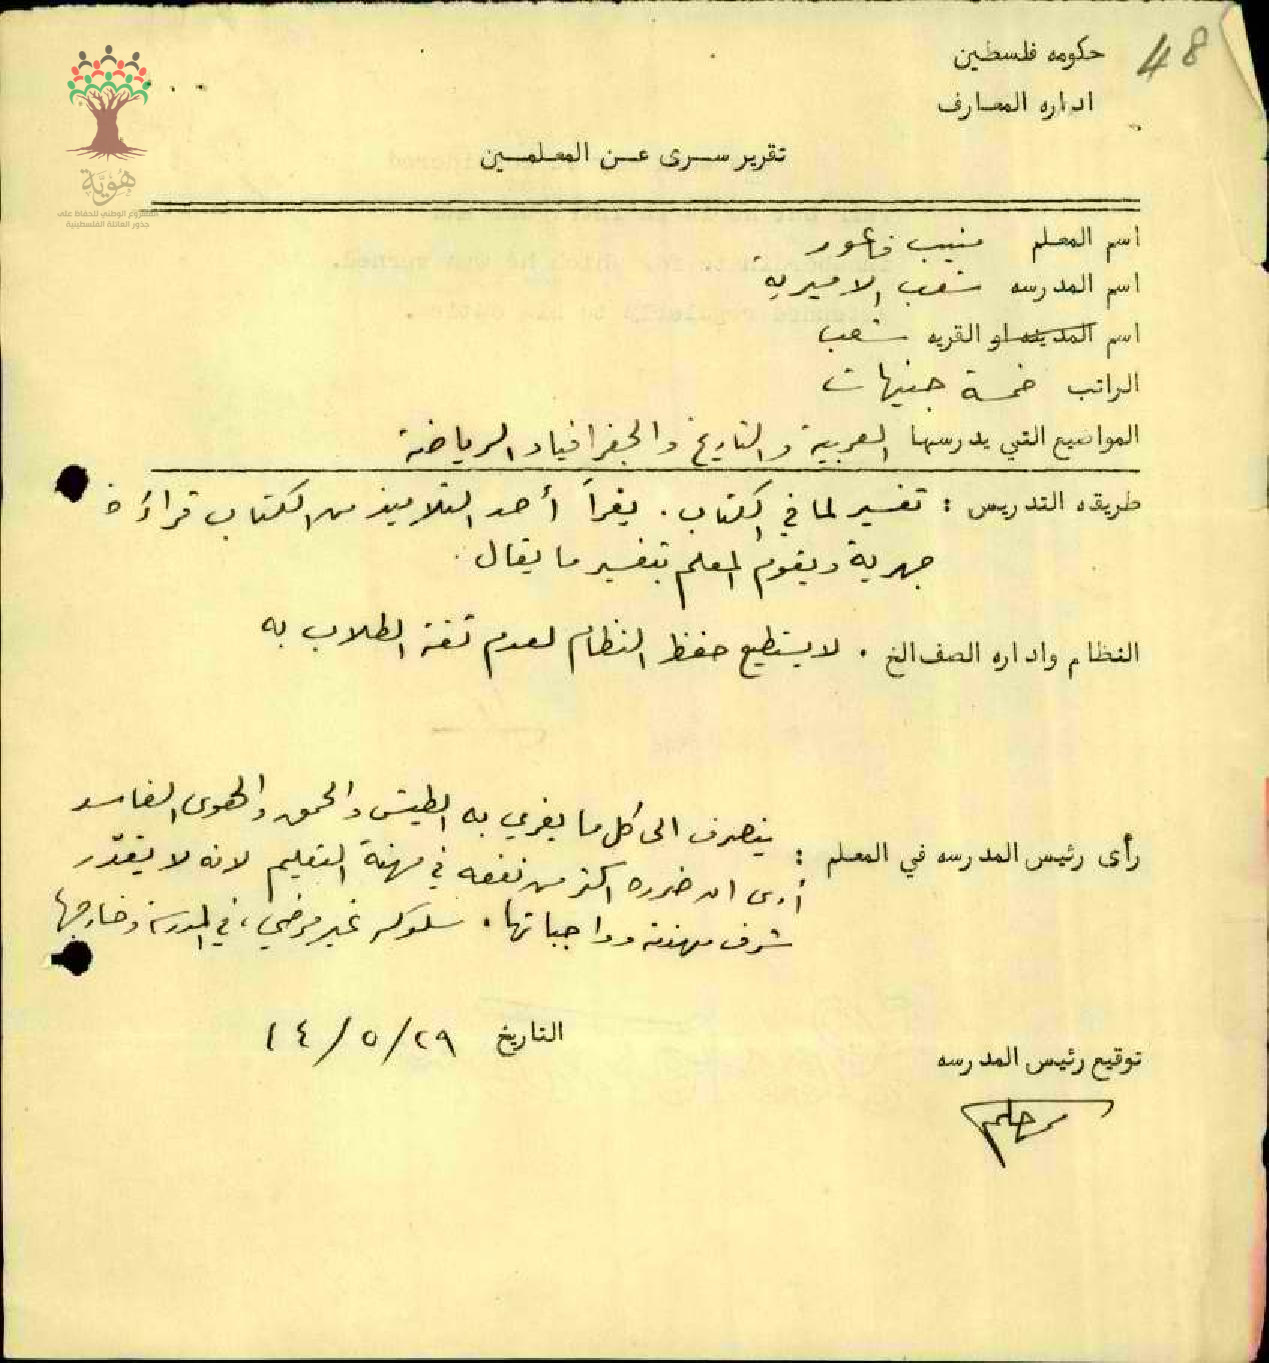 48
حكومه فلسطين
اداره المعارف
تقرير سرى عن المعلمين
هُويَّة
المشروع الوطني للحفاظ على
جذور العائلة الفلسطينية
اسم المعلم منيب فاعور
اسم المدرسه شعب الاميرية
اسم المدينه او القريه شعب
الراتب خمسة جنيهات
المواضيع التي يدرسها العربية والتاريخ والجغرافيا والرياضة
طريقه التدريس : تفسير لما في الكتاب . يقرأ أحد التلاميذ من الكتاب قراءة
جهرية ويقوم المعلم بتفسير ما يقال .
النظام واداره الصف الخ . لا يستطيع حفظ النظام لعدم ثقة الطلاب به
ينصرف الى كل ما يغري به الطيش والحمق والهوى الفاسد
رأى رئيس المدرسه في المعلم :
أرى ان ضرره اكثر من نفعه في مهنة التعليم لانه لا يقدّر
شرف مهنته وواجباتها . سلوكه غير مرضي ، في المدرسة وخارجها
التاريخ ٢٩/٥/٤١
توقيع رئيس المدرسه